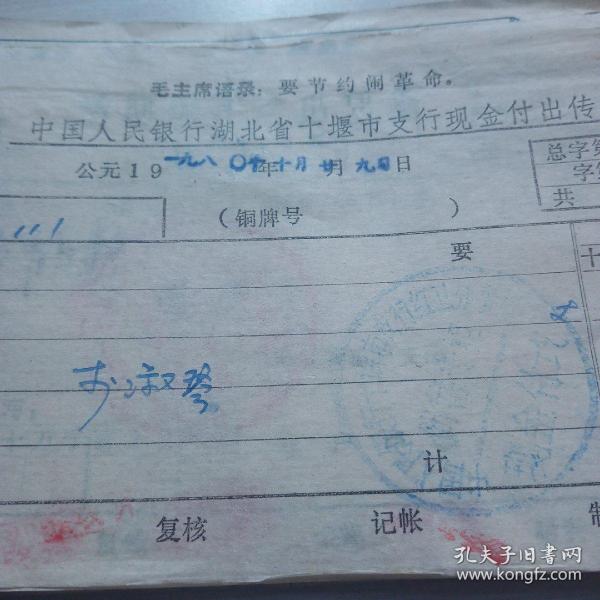 毛主席语录：要节约闹革命。
中国人民银行湖北省十堰市支行现金付出传
公元19 一九八〇年十月廿九日
总字第
字第
111
（铜牌号 ）
共
要 十
李淑琴
计
复核 记帐 制
孔夫子旧书网
www.kongfz.com